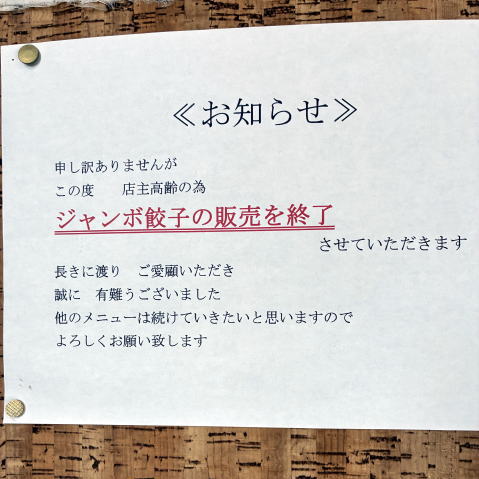 ≪お知らせ≫
申し訳ありませんが
この度　　店主高齢の為
ジャンボ餃子の販売を終了
させていただきます
長きに渡り　ご愛顧いただき
誠に　有難うございました
他のメニューは続けていきたいと思いますので
よろしくお願い致します